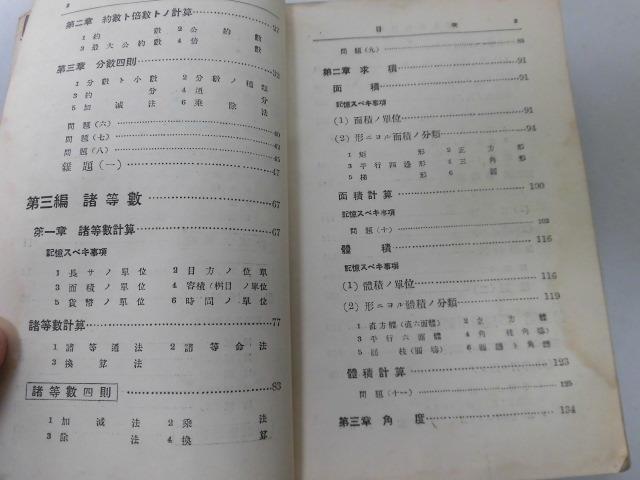 2
第二章 約數ト倍數トノ計算
1 約數 2 公約數
3 最大公約數 4 倍數
第三章 分數四則
1 分數ト小數 2 分數ノ種類
3 約分 4 通分
5 加減法 6 乘除法
問題(六) 40
問題(七) 43
問題(八) 45
雜題(一) 47
第三編 諸等數 67
第一章 諸等數計算 67
記憶スベキ事項
1 長サノ單位 2 目方ノ位單
3 面積ノ單位 4 容積(桝目ノ單位
5 貨幣ノ單位 6 時間ノ單位
諸等數計算 77
1 諸等通法 2 諸等命法
3 換算法
諸等數四則 83
1 加減法 2 乘法
3 除法 4 換算
目次 3
問題(九) 88
第二章 求積 91
面積 91
記憶スベキ事項
(1) 面積ノ單位 91
(2) 形ニヨル面積ノ分類 94
1 矩形 2 正方形
3 平行四邊形 4 三角形
5 梯形 6 圓
面積計算 100
記憶スベキ事項
問題(十) 103
體積 116
記憶スベキ事項
(1) 體積ノ單位 116
(2) 形ニヨル體積ノ分類 119
1 直方體(直六面體) 2 立方體
3 平行六面體 4 角枝(角壔)
5 圓枝(圓壔) 6 圓錐ト角錐
體積計算 123
問題(十一) 125
第三章 角度 134